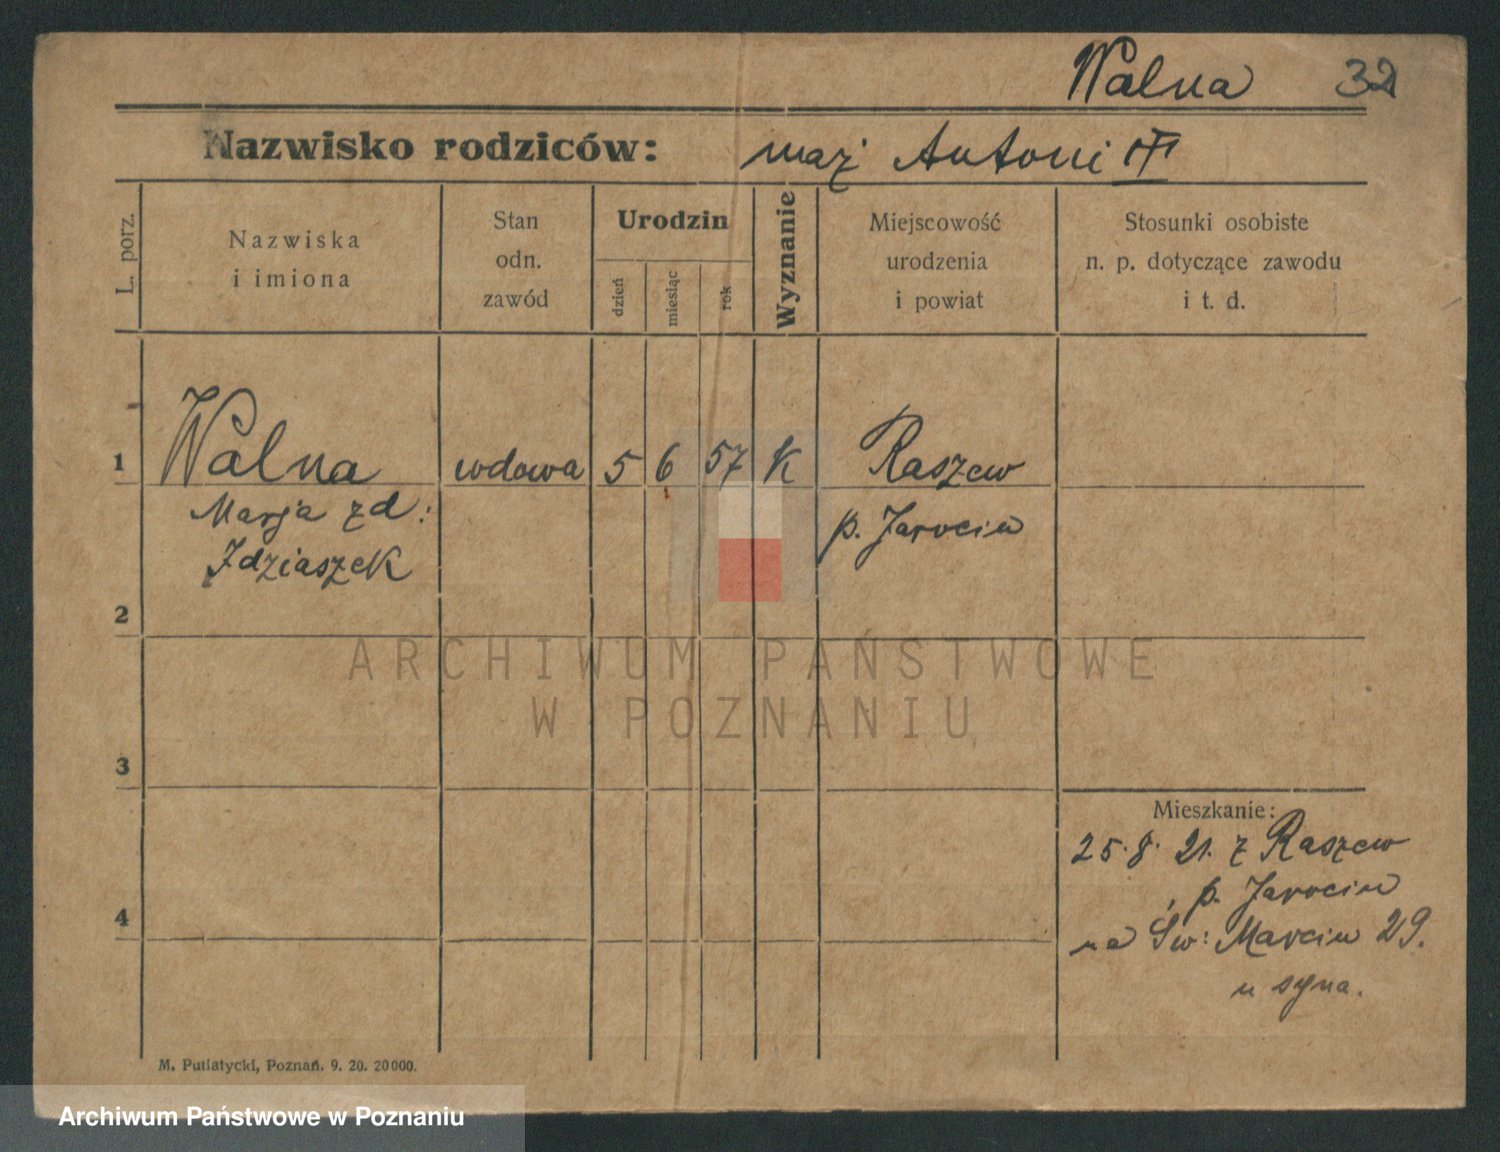 Walna 32
Nazwisko rodziców: mąż Antoni
L. porz.
Nazwiska
i imiona
Stan
odn.
zawód
Urodzin
dzień
miesiąc
rok
Wyznanie
Miejscowość
urodzenia
i powiat
Stosunki osobiste
n. p. dotyczące zawodu
i t. d.
1 Walna wdowa 5 6 57 K Raszew
Marja zd: p. Jarocin
Idziaszek
2
3
Mieszkanie:
25.8. 21. z Raszew
p. Jarocin
4
na Św: Marcin 29.
u syna.
M. Putiatycki, Poznań. 9. 20. 20000.
ARCHIWUM PAŃSTWOWE
W POZNANIU
Archiwum Państwowe w Poznaniu